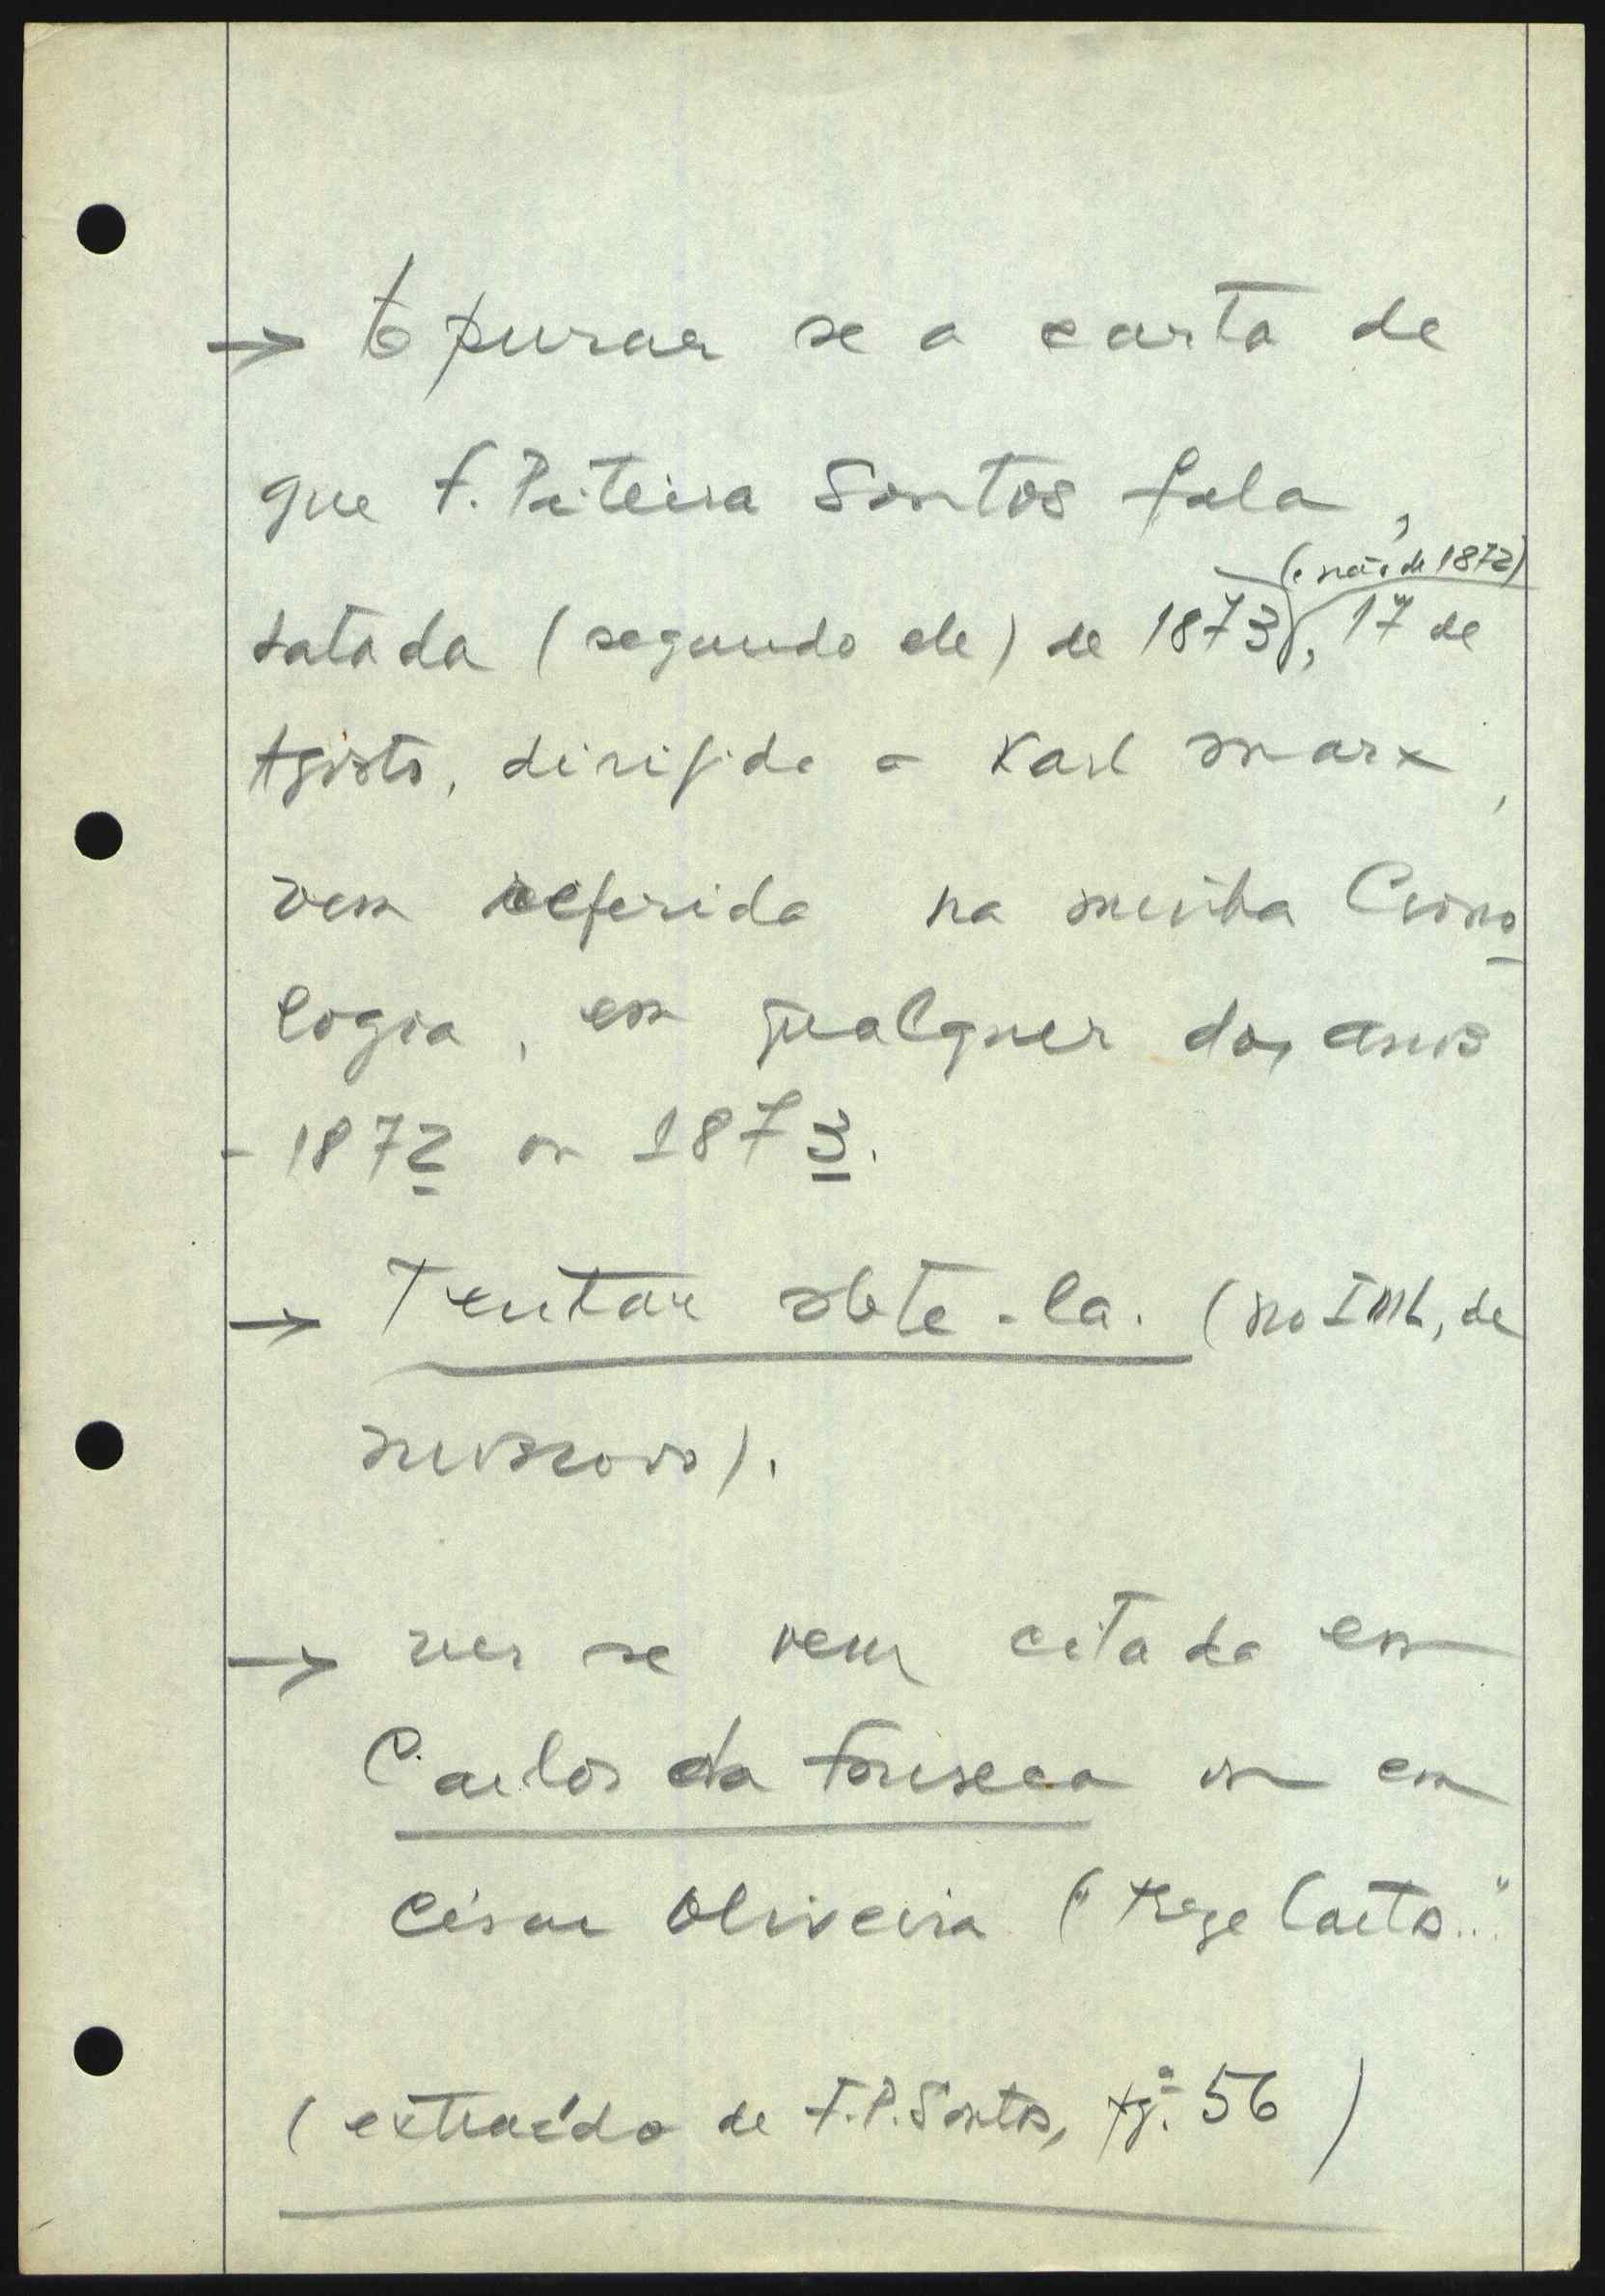 → Apurar se a carta de
que F. Piteira Santos fala,
(e não de 1872)
datada (segundo ele) de 1873, 17 de
Agosto, dirigida a Karl Marx,
vem referida na minha Crono
logia, em qualquer dos anos
- 1872 ou 1873.
→ Tentar obte-la. (no IML, de
Moscovo).
→ ver se vem citada em
Carlos da Fonseca ou em
César Oliveira ("Treze Cartas..."
(extraído de F.P. Santos, pgª. 56)